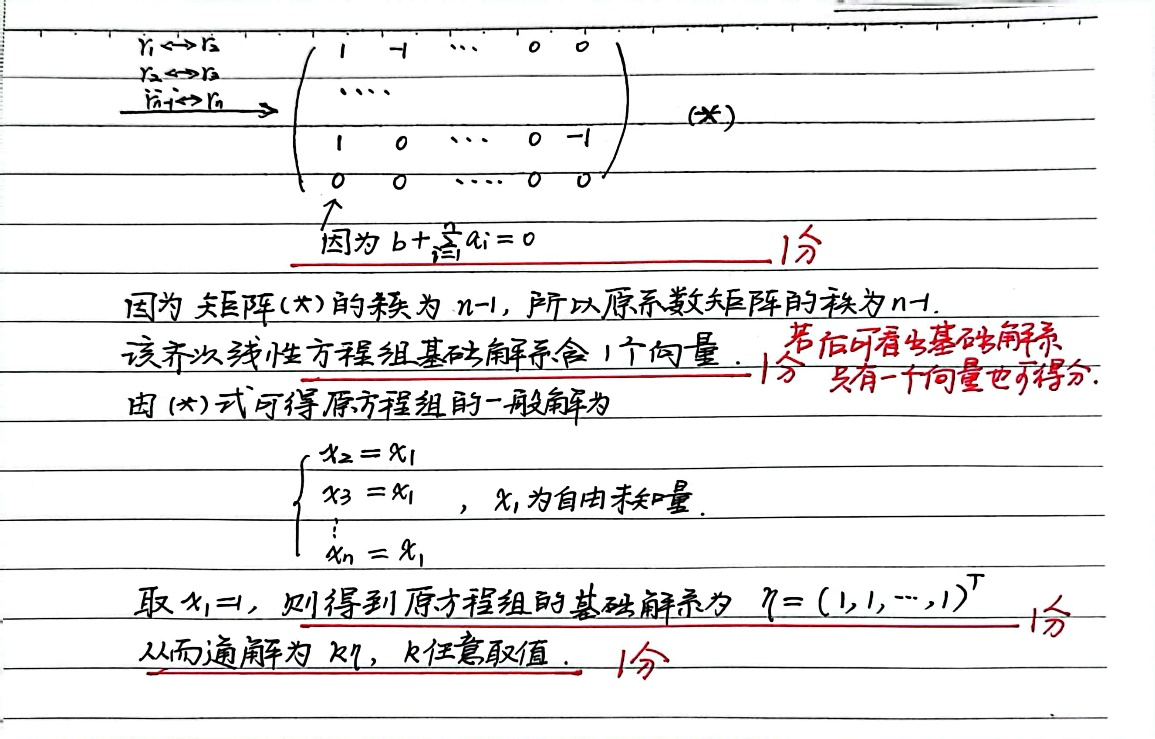 r₁↔r₂
r₂↔r₃
rₙ₋₁↔rₙ
1 -1 ⋯ 0 0
⋯⋯
1 0 ⋯ 0 -1
0 0 ⋯⋯ 0 0
(*)
因为 b+∑ᵢ₌₁ⁿ aᵢ=0 1分
因为矩阵(*)的秩为 n-1, 所以原系数矩阵的秩为n-1.
该齐次线性方程组基础解系含1个向量. 1分
若后可看出基础解系
只有一个向量也可得分.
由(*)式可得原方程组的一般解为
x₂=x₁
x₃=x₁ , x₁为自由未知量.
⋮
xₙ=x₁
取x₁=1, 则得到原方程组的基础解系为 η=(1,1,⋯,1)ᵀ 1分
从而通解为 kη, k任意取值. 1分